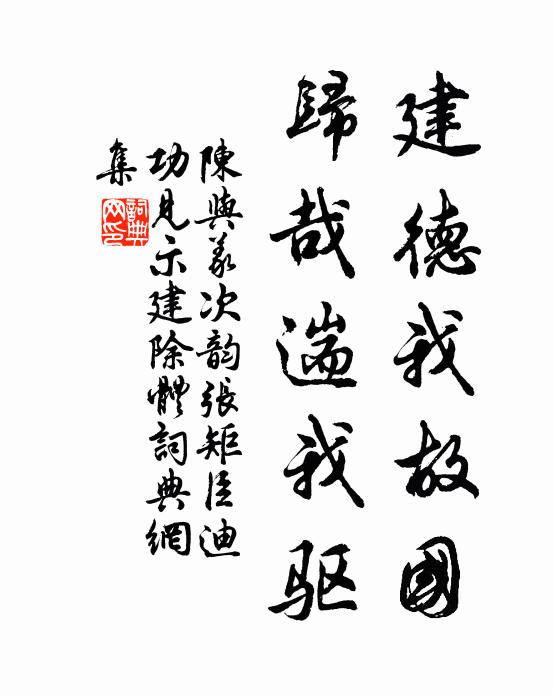 建德我故國
歸哉遄我驱
陳與義次韵張矩臣迪
功見示建除體詞典網
集
詞典
网印